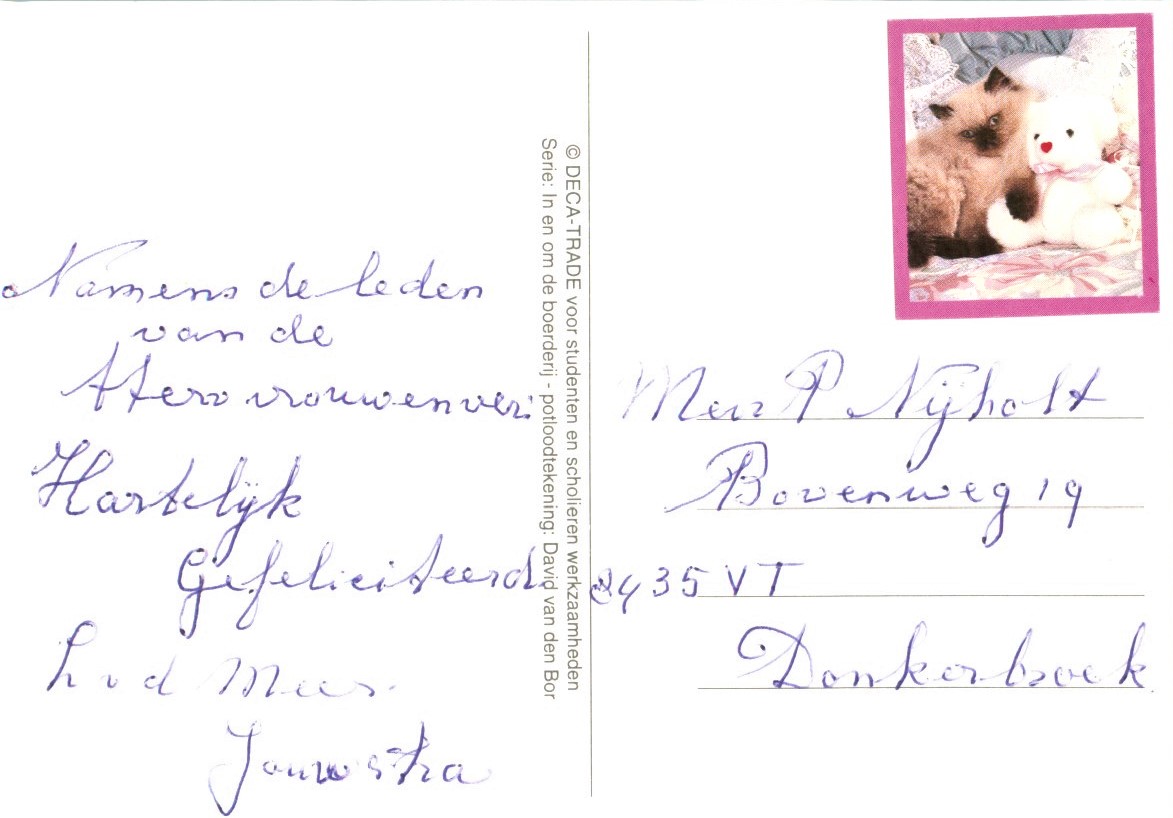 Namens de leden
van de
Attero vrouwenver:
Hartelijk
Gefeliciteerd.
h v d Meer
© DECA-TRADE voor studenten en scholieren werkzaamheden
Serie: In en om de boerderij - potloodtekening: David van den Bor
P Nijholt
Bovenweg 19
8435 VT
Donkerbroek